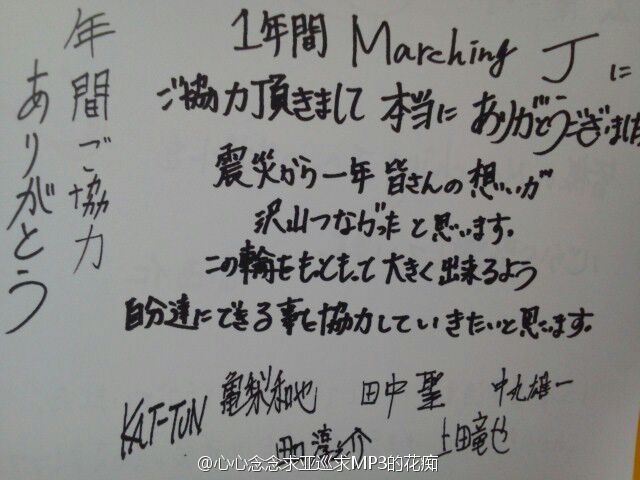 年間ご協力
ありがとう
1年間 Marching Jに
ご協力頂きまして 本当に ありがとうございました
震災から一年 皆さんの 想いが
沢山つながったと思います。
この輪をもっともっと大きく出来るよう
自分達にできる事を協力していきたいと思います。
KAT-TUN 亀梨和也 田中聖 中丸雄一
田口淳之介 上田竜也
@心心念念求亚巡求MP3的花痴